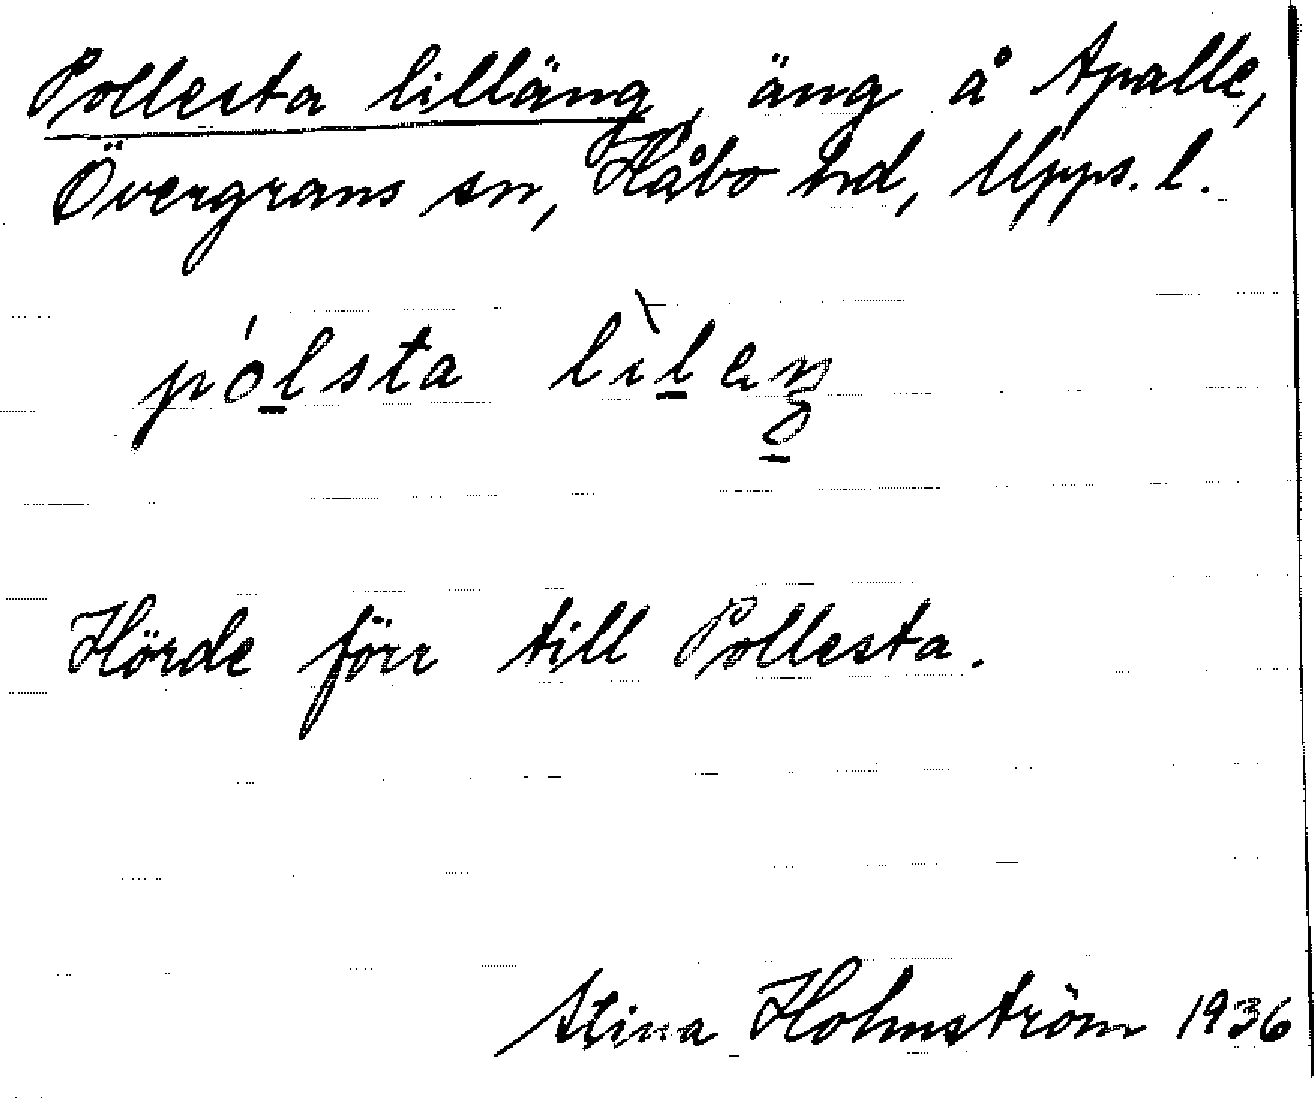 Pollesta lilläng, äng å Apalle,
Övergrans sn, Håbo hd, Upps. l.
pólsta lìlăŋ
Hörde förr till Pollesta.
Stina Holmström 1936